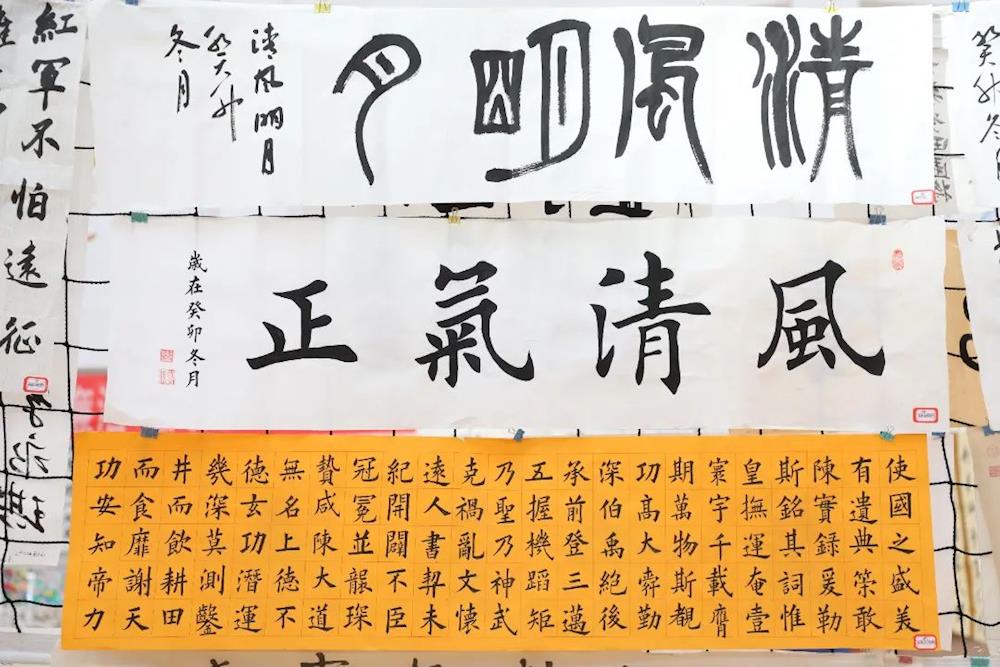 清風明月
清风明月
癸卯
冬月
風清氣正
歲在癸卯冬月
使國之盛美
有遺典筞敢
陳實録爰勒
斯銘其詞惟
皇撫運奄壹
寰宇千載膺
期萬物斯覩
功髙大舜勤
深伯禹絶後
承前登三邁
五握機蹈矩
乃聖乃神武
克禍亂文懷
遠人書契未
紀開闢不臣
冠冕並龍琛
贄咸陳大道
無名上德不
德玄功潛運
幾深莫測鑿
井而飲耕田
而食靡謝天
功安知帝力
紅軍不怕遠征
癸卯冬月